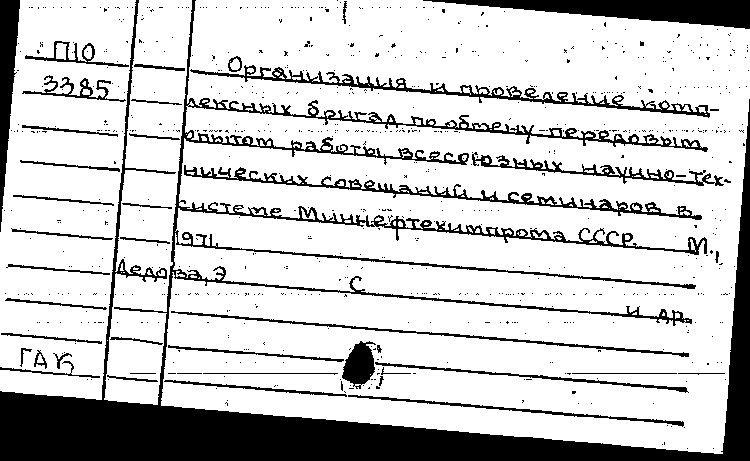 П10
3385
Организация и проведение комп-
лексных бригад по обмену передовым
опытом работы, всесоюзных научно-тех-
нических совещаний и семинаров в
системе Миннефтехимпрома СССР. М.,
1971.
Дедова, Э С и др.
ГАК